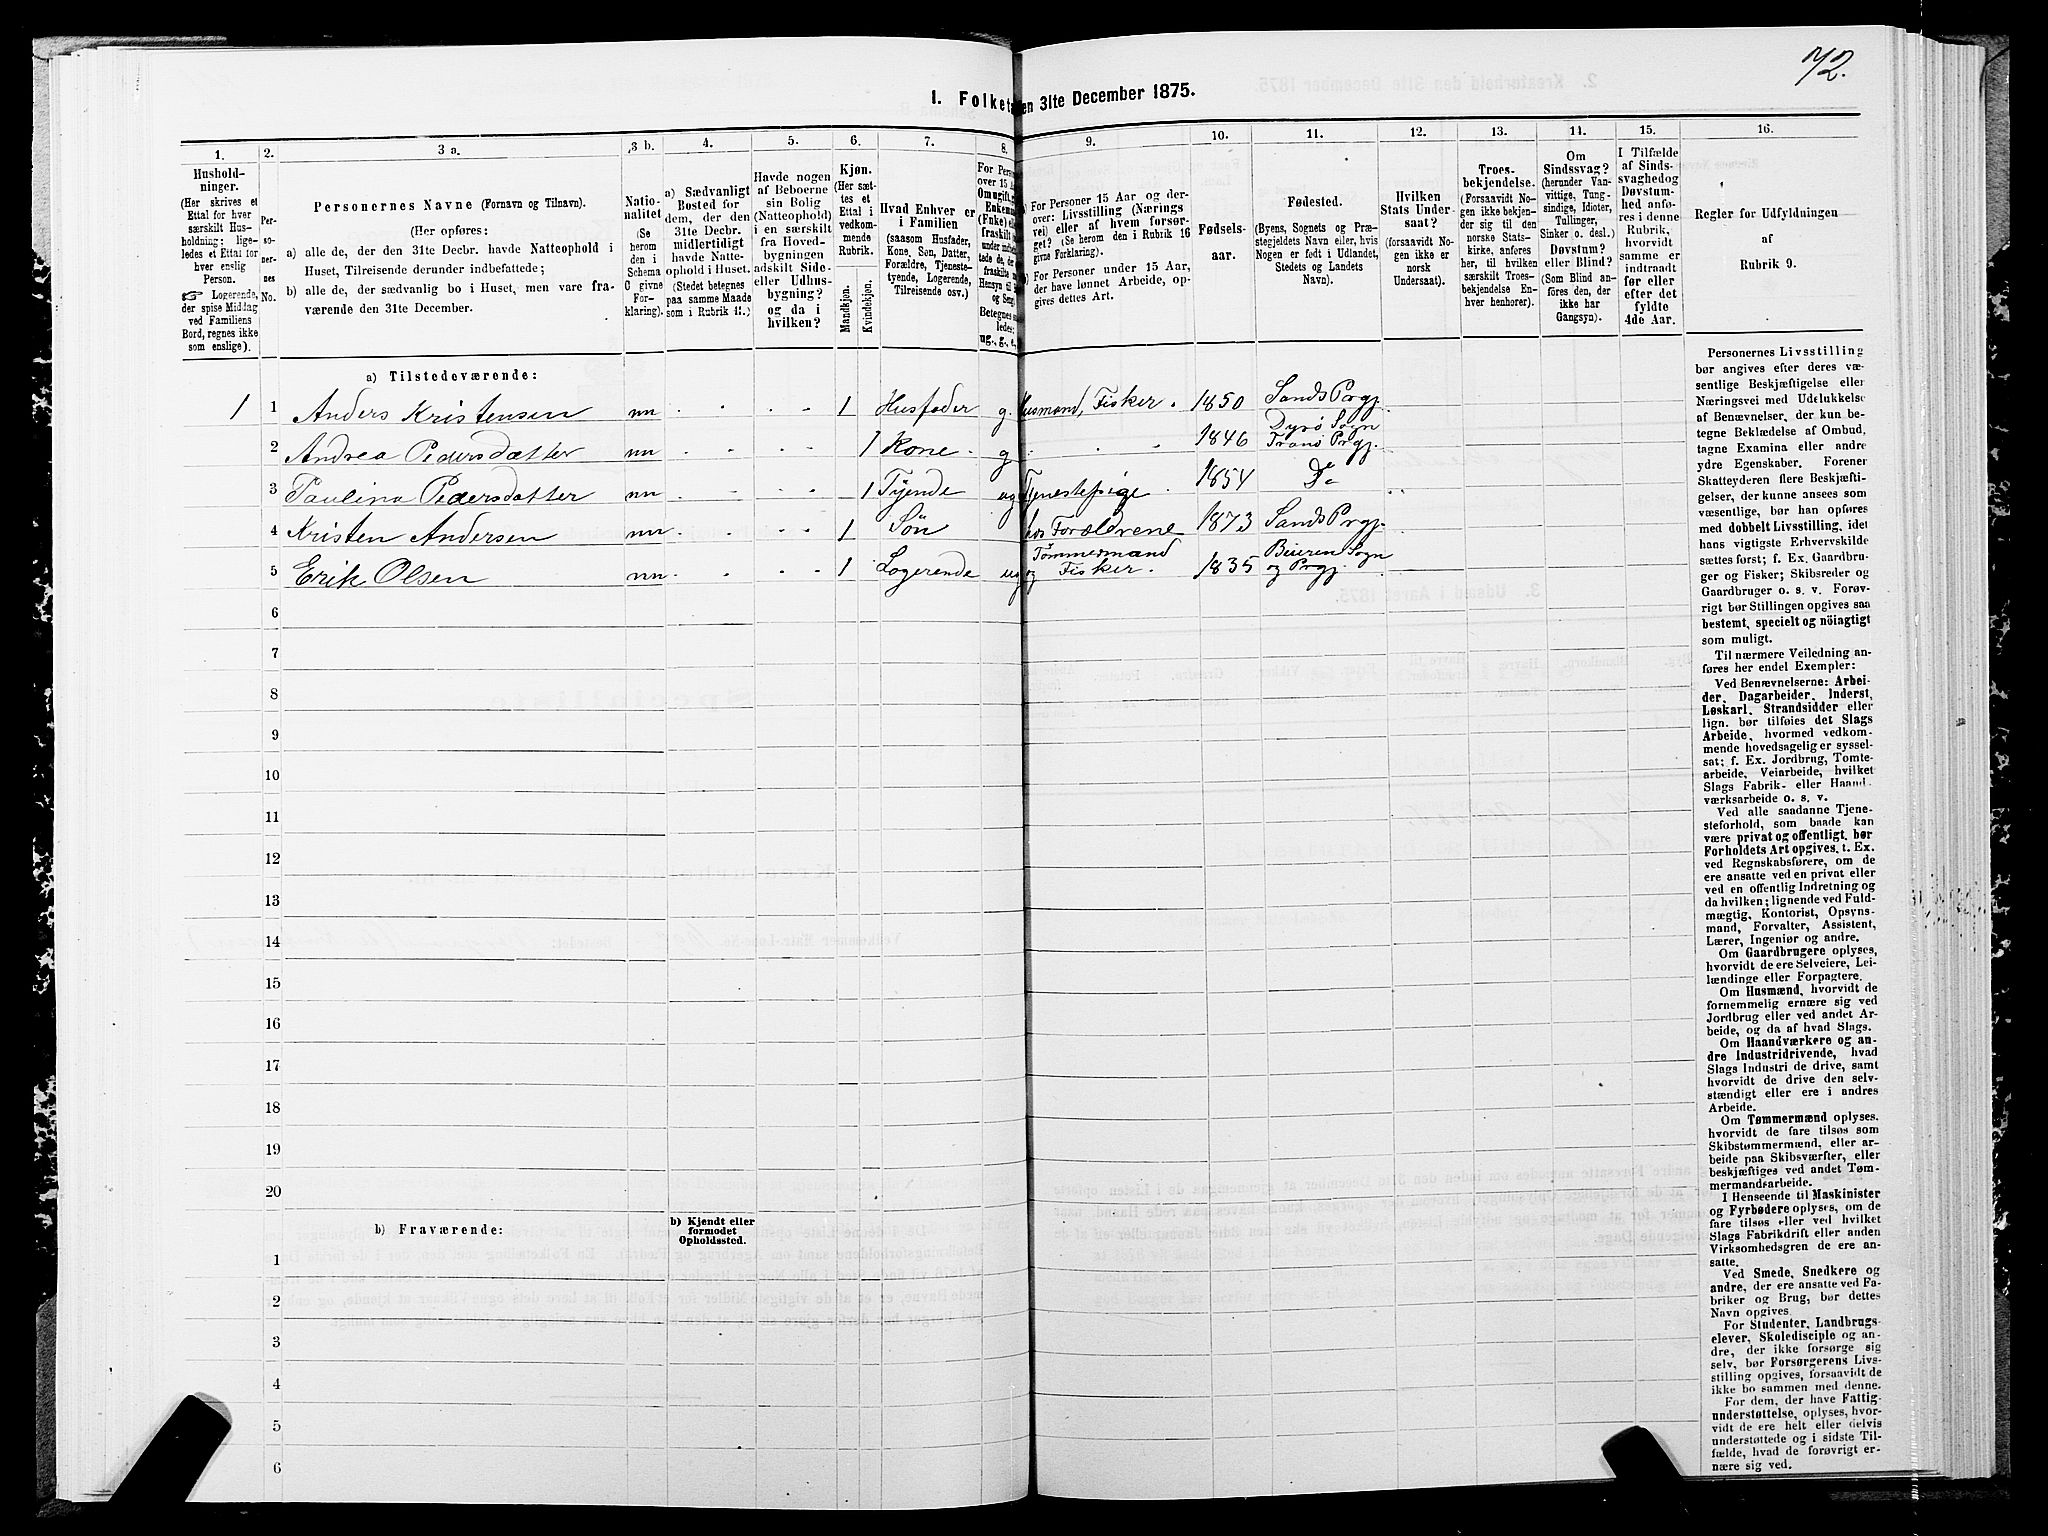 72.
1. Folketa en 31te December 1875.
1. 2. 3 a. 3 b. 4. 5. 6. 7. 8. 9. 10. 11. 12. 13. 14. 15. 16.
Hushold-
ninger.
(Her skrives et
Ettal for hver
særskilt Hus-
holdning; lige-
ledes et Ettal for
hver enslig
Person.
☞ Logerende,
der spise Middag
ved Familiens
Bord, regnes ikke
som enslige).
Per-
so-
ner-
nes
No.
Personernes Navne (Fornavn og Tilnavn).
(Her opføres:
a) alle de, der den 31te Decbr. havde Natteophold i
Huset, Tilreisende derunder indbefattede;
b) alle de, der sædvanlig bo i Huset, men vare fra-
værende den 31te December.
Natio-
nalitet
(Se
herom
den i
Schema
C givne
For-
klaring).
a) Sædvanligt
Bosted for
dem, der den
31te Decbr.
midlertidigt
havde Natte-
ophold i Huset.
(Stedet betegnes
paa samme Maade
som i Rubrik 11.)
Havde nogen
af Beboerne
sin Bolig
(Natteophold)
i en særskilt
fra Hoved-
bygningen
adskilt Side-
eller Udhus-
bygning?
og da i
hvilken?
Kjøn.
(Her sæt-
tes et
Ettal i
vedkom-
mende
Rubrik.
Mandkjøn.
Kvindekjøn.
Hvad Enhver er
i Familien
(saasom Husfader,
Kone, Søn, Datter,
Forældre, Tjeneste-
tyende, Logerende,
Tilreisende osv.)
For Person
over 15 A
Om ugift,
Enkem
(Fuke)
fraskilt
under indbefat-
tede de, d
fraskilte
Hensyn ti
og Seng
Betegnes saa-
ledes:
ug., g., e.,
a) For Personer 15 Aar og der-
over: Livsstilling (Nærings-
vei) eller af hvem forsør-
get? (Se herom den i Rubrik 16
givne Forklaring).
b) For Personer under 15 Aar,
der have lønnet Arbeide, op-
gives dettes Art.
Fødsels-
aar.
Fødested.
(Byens, Sognets og Præ-
stegjeldets Navn eller, hvis
Nogen er født i Udlandet,
Stedets og Landets
Navn).
Hvilken
Stats Under-
saat?
(forsaavidt No-
gen ikke er
norsk
Undersaat).
Troes-
bekjendelse.
(Forsaavidt No-
gen ikke bekjen-
der sig til den
norske Stats-
kirke, anføres
her, til hvilken
særskilt Troes-
bekjendelse En-
hver henhorer).
Om
Sindssvag?
(herunder Van-
vittige, Tung-
sindige, Idioter,
Tullinger,
Sinker o. desl.)
Døvstum?
eller Blind?
(Som Blind an-
føres den, der
ikke har
Gangsyn).
I Tilfælde
af Sinds-
svaghed og
Døvstum-
hed anfø-
res i denne
Rubrik,
hvorvidt
samme er
indtraadt
før eller
efter det
fyldte
4de Aar.
Regler for Udfyldningen
af
Rubrik 9.
a) Tilstedeværende:
1 1 Anders Kristensen nn 1 Husfader g. Husmand, Fisker. 1850 Sands Prgj.
2 Andrea Pedersdatter nn 1 Kone g 1846 Dyrø Sogn
Tranø Prgj.
3 Paulina Pedersdatter nn 1 Tyende ug Tjenestepige 1854 Do
4 Kristen Andersen nn 1 Søn hos Forældrene 1873 Sands Prgj.
5 Erik Olsen nn 1 Logerende ug Tömmermand
og Fisker. 1835 Beieren Sogn
og Prgj.
6
7
8
9
10
11
12
13
14
15
16
17
18
19
20
b) Fraværende:
b) Kjendt eller
formodet
Opholdssted.
1
2
3
4
5
6
Personernes Livsstilling
bør angives efter deres væ-
sentlige Beskjæftigelse eller
Næringsvei med Udelukkelse
af Benævnelser, der kun be-
tegne Beklædelse af Ombud,
tagne Examina eller andre
ydre Egenskaber. Forener
Skatteyderen flere Beskjæfti-
gelser, der kunne ansees som
væsentlige, bør han opføres
med dobbelt Livsstilling, idet
hans vigtigste Erhvervskilde
sættes først; f. Ex. Gaardbru-
ger og Fisker; Skibsreder og
Gaardbruger o. s. v. Forøv-
rigt bør Stillingen opgives saa
bestemt, specielt og nöiagtigt
som muligt.
Til nærmere Veiledning an-
føres her endel Exempler:
Ved Benævnelserne: Arbei-
der, Dagarbeider, Inderst,
Løskarl, Strandsidder eller
lign. bør tilføies det Slags
Arbeide, hvormed vedkom-
mende hovedsagelig er syssel-
sat; f. Ex. Jordbrug, Tomte-
arbeide, Veiarbeide, hvilket
Slags Fabrik- eller Haand-
værksarbeide o. s. v.
Ved alle saadanne Tjene-
steforhold, som baade kan
være privat og offentligt, bør
Forholdets Art opgives, t. Ex.
ved Regnskabsførere, om de
ere ansatte ved en privat eller
ved en offentlig Indretning og
da hvilken; lignende ved Fuld-
mægtig, Kontorist, Opsyns-
mand, Forvalter, Assistent,
Lærer, Ingeniør og andre.
Om Gaardbrugere oplyses,
hvorvidt de ere Selveiere, Lei-
lændinge eller Forpagtere.
Om Husmænd, hvorvidt de
fornemmelig ernære sig ved
Jordbrug eller ved andet Ar-
beide, og da af hvad Slags.
Om Haandværkere og an-
dre Industridrivende, hvad
Slags Industri de drive, samt
hvorvidt de drive den selv-
stændigt eller ere i andres
Arbeide.
Om Tømmermænd oplyses,
hvorvidt de fare tilsøs som
Skibstømmermænd, eller ar-
beide paa Skibsværfter, eller
beskjæftiges ved andet Tøm-
mermandsarbeide.
I Henseende til Maskinister
og Fyrbødere oplyses, om de
fare tilsøs eller ved hvilket
Slags Fabrikdrift eller anden
Virksomhedsgren de ere an-
satte.
Ved Smede, Snedkere og
andre, der ere ansatte ved Fa-
briker og Brug, bør dettes
Navn opgives.
For Studenter, Landbrugs-
elever, Skoledisciple og an-
dre, der ikke forsørge sig
selv, bør Forsørgerens Livs-
stilling opgives, forsaavidt de
ikke bo sammen med denne.
For dem, der have Fattig-
understøttelse, oplyses, hvor-
vidt de ere helt eller delvis
understøttede og i sidste Til-
fælde, hvad de forøvrigt er-
nære sig ved.